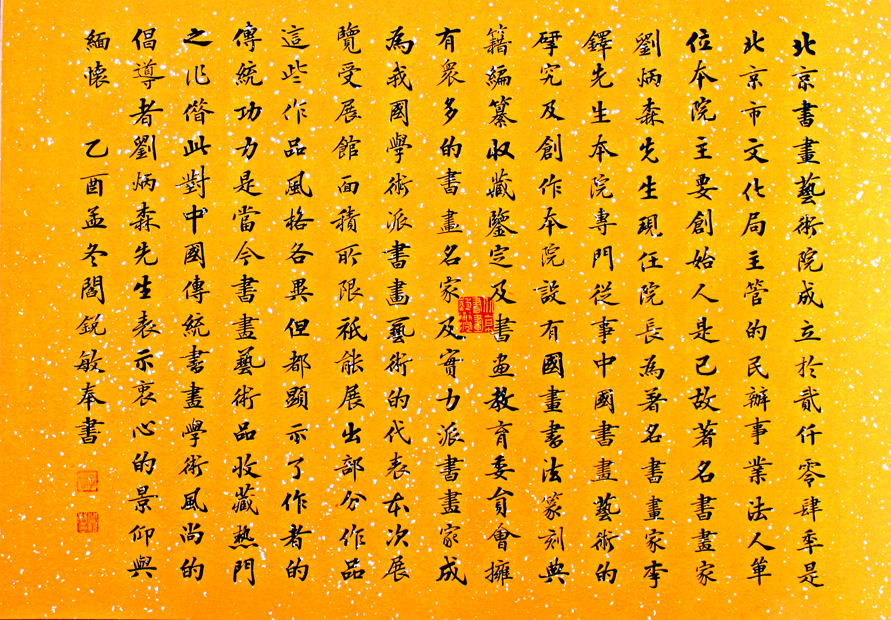 北京書畫藝術院成立於貳仟零肆年是
北京市文化局主管的民辦事業法人單
位本院主要創始人是已故著名書畫家
劉炳森先生現任院長為著名書畫家李
鐸先生本院專門從事中國書畫藝術的
研究及創作本院設有國畫書法篆刻典
籍編纂收藏鑒定及書画教育委員會擁
有眾多的書畫名家及實力派書畫家成
為我國學術派書畫藝術的代表本次展
覽受展館面積所限祇能展出部分作品
這些作品風格各異但都顯示了作者的
傳統功力是當今書畫藝術品收藏熱門
之作借此對中國傳統書畫學術風尚的
倡導者劉炳森先生表示衷心的景仰與
緬懷 乙酉孟冬閻銳敏奉書